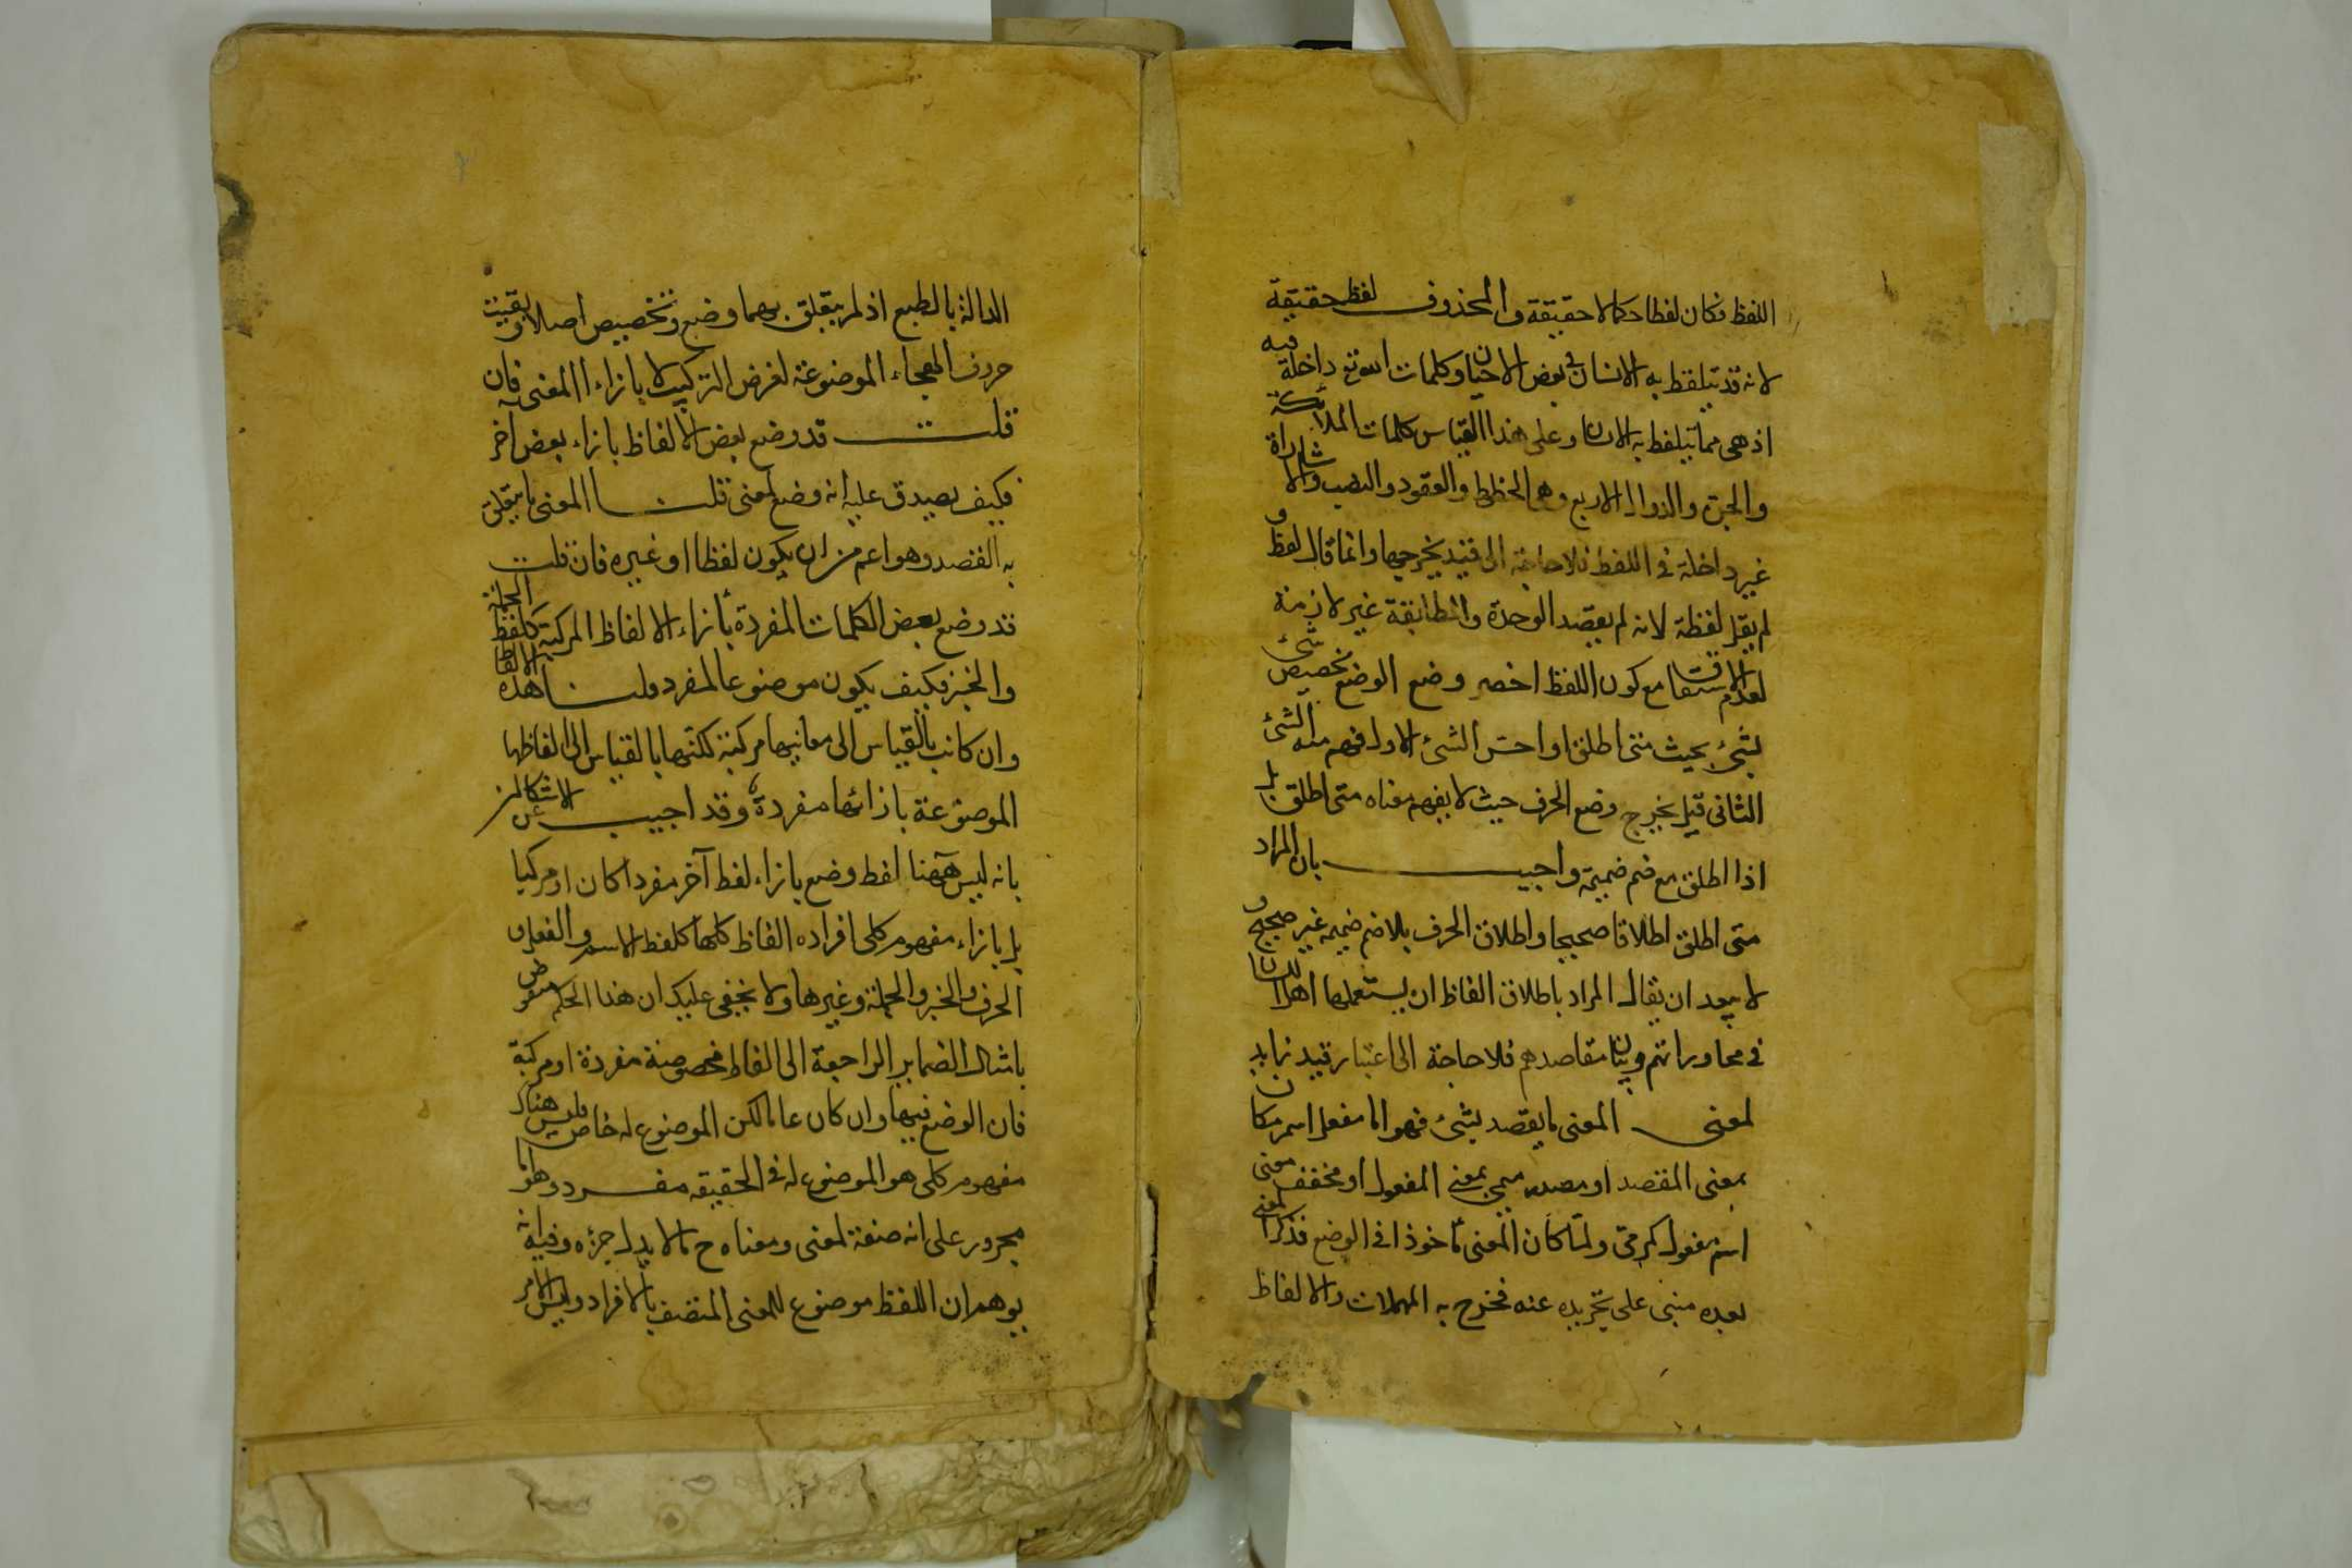 اللفظ فكان لفظا حكما لا حقيقة والمحذوف لفظ حقيقة
لانه قد يتلفظ به الانسان في بعض الاحيان وكلمات الله تع داخلة فيه
اذ هى مما يتلفظ به الانسان وعلى هذا القياس كلمات الملائكة
والجن والدوال الاربع وهى الخطوط والعقود والنصب والاشارات
غير داخلة فى اللفظ فلا حاجة الى قيد يخرجها وانما قال لفظ و
لم يقل لفظة لانه لم يقصد الوحدة والمطابقة غير لازمة
لعدم الاشتقاق مع كون اللفظ اخصر وضع الوضع تخصيص شئ
بشئ بحيث متى اطلق او احس الشئ الاول فهم منه الشئ
الثانى قيل يخرج وضع الحرف حيث لا يفهم معناه متى اطلق بل
اذا اطلق مع ضم ضميمة واجيب بان المراد
متى اطلق اطلاقا صحيحا واطلاق الحرف بلا ضم ضميمة غير صحيح و
لا يبعد ان يقال المراد باطلاق الفاظ ان يستعملها اهل اللسان
فى محاوراتهم وبيان مقاصدهم فلا حاجة الى اعتبار قيد زايد
لمعنى المعنى ما يقصد بشئ فهو اما مفعل اسم مكان
بمعنى المقصد او مصدر ميمى بمعنى المفعول او مخفف معنى
اسم مفعول كرمى ولما كان المعنى مأخوذا فى الوضع فذكر المعنى
بعده مبنى على تجريده عنه فخرج به المهملات والالفاظ
الدالة بالطبع اذ لم يتعلق بهما وضع وتخصيص اصلا وبقيت
حروف الهجاء الموضوعة لغرض التركيب لا بازاء المعنى به فان
قلت قد وضع بعض الالفاظ بازاء بعض آخر
فكيف يصدق عليه انه وضع لمعنى قلنا المعنى ما يتعلق
به القصد وهو اعم من ان يكون لفظا او غيره فان قلت
قد وضع بعض الكلمات المفردة بأزاء الالفاظ المركبة كلفظ الجملة
والخبر فكيف يكون موضوعا لمفرد قلنا هذه الالفاظ
وان كانت بالقياس الى معانيها مركبة لكنها بالقياس الى الفاظها
الموضوعة بازائها مفردة وقد اجيب عن الاشكالين
بانه ليس ههنا لفظ وضع بازاء لفظ آخر مفردا كان او مركبا
بل بازاء مفهوم كلى افراده الفاظ كلها كلفظ الاسم والفعل و
الحرف والخبر والجملة وغيرها ولا يخفى عليك ان هذا الحكم منقوض
بامثال الضماير الراجعة الى الفاظ مخصوصة مفردة او مركبة
فان الوضع فيها وان كان عاما لكن الموضوع له خاص فليس هناك
مفهوم كلى هو الموضوع له فى الحقيقه مفرد وهو اما
مجرور على انه صفة لمعنى ومعناه ح ما لا يدل جزءه وفيه انه
يوهم ان اللفظ موضوع للمعنى المتصف بالافراد وليس الامر